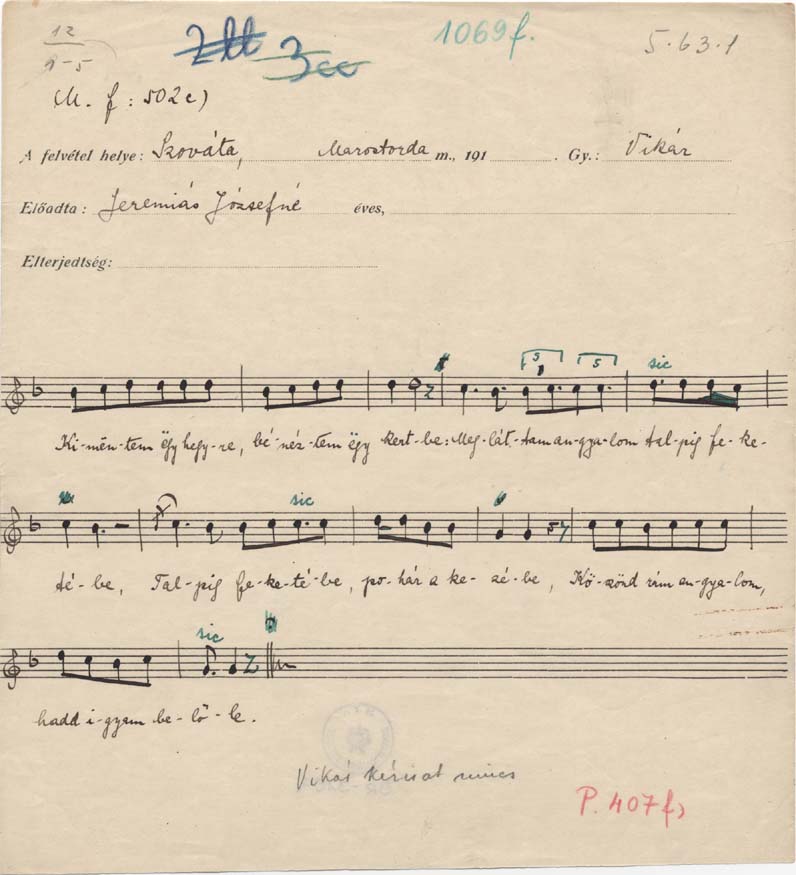 12
1-5
Zll 3cc
1069f.
5.63.1
(M. f: 502c)
A felvétel helye: Szováta, Marostorda m., 191 . Gy.: Vikár
Előadta: Jeremiás Józsefné éves,
Elterjedtség:
5 5 sic
Ki-mēn-tem ëgy hegy-re, bé-néz-tem ëgy kert-be: Meg-lát-tam an-gya-lom tal-pig fe-ke-
sic
té-be, Tal-pig fe-ke-té-be, po-hár a ke-zé-be, Kö-szönd rám an-gya-lom,
sic
hadd i-gyam be-lő-le.
Vikár nincs
P. 407f)